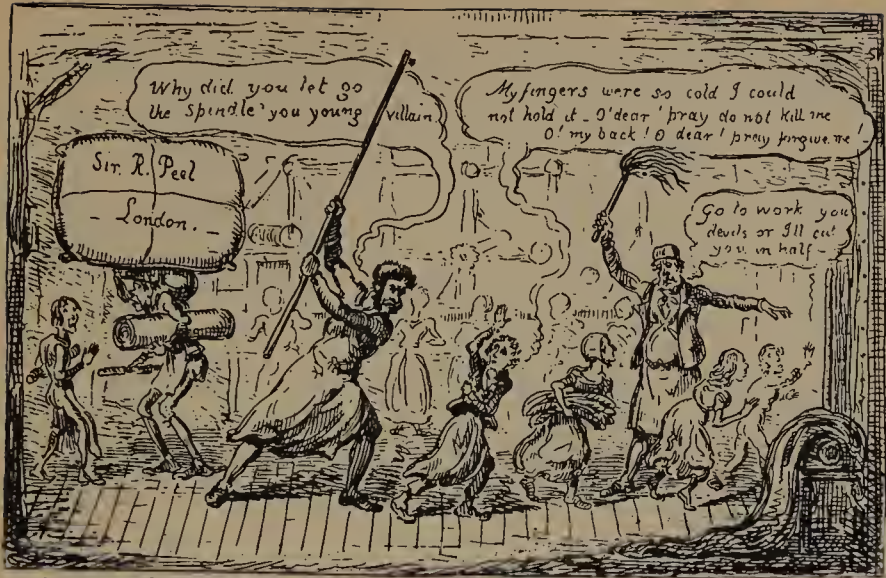 Why did you let go
the Spindle' you young villain
My fingers were so cold I could
not hold it - O' dear' pray do not kill me
O! my back! O dear! pray forgive me!
Sir. R. Peel
- London. -
Go to work you
devils or Ill cut
you in half